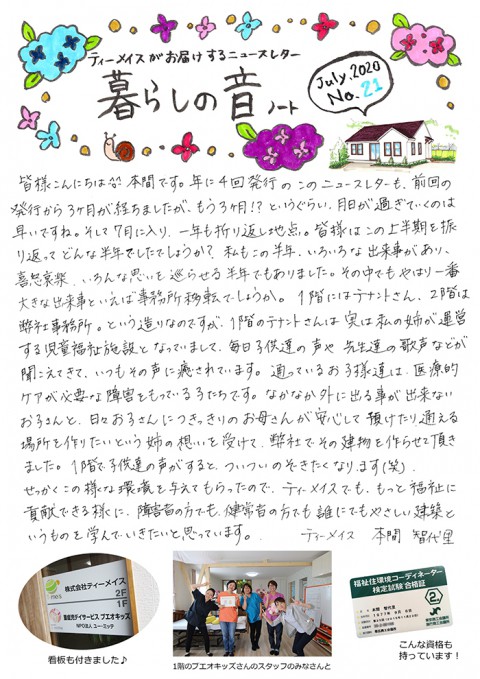 ティーメイスがお届けするニュースレター
暮らしの音ノート
July. 2020
No. 21
皆様こんにちは 本間です。年に4回発行のこのニュースレターも、前回の
発行から3ヶ月が経ちましたが、もう3ヶ月!?というぐらい、月日が過ぎていくのは
早いですね。そして7月に入り、一年も折り返し地点。皆様はこの上半期を振
り返ってどんな半年でしたでしょうか？私もこの半年、いろいろな出来事があり、
喜怒哀楽、いろんな思いを巡らせる半年でもありました。その中でもやはり一番
大きな出来事といえば事務所移転でしょうか。1階にはテナントさん、2階は
弊社事務所。という造りなのですが、1階のテナントさんは実は私の姉が運営
する児童福祉施設となっていまして、毎日子供達の声や先生達の歌声などが
聞こえてきて、いつもその声に癒されています。通っているお子様達は、医療的
ケアが必要な障害をもっている子たちです。なかなか外に出る事が出来ない
お子さんと、日々お子さんにつきっきりのお母さんが安心して預けたり、通える
場所を作りたいという姉の想いを受けて、弊社でその建物を作らせて頂き
ました。1階で子供達の声がすると、ついついのぞきたくなります(笑)
せっかくこの様な環境を与えてもらったので、ティーメイスでも、もっと福祉に
貢献できる様に、障害者の方でも、健常者の方でも誰にでもやさしい建築と
いうものを学んでいきたいと思っています。 ティーメイス 本間 智代里
株式会社ティーメイス
2F
1F
重症児デイサービス ブエオキッズ
NPO法人ユー・エッテ
看板も付きました♪
1階のブエオキッズさんのスタッフのみなさんと
福祉住環境コーディネーター
検定試験 合格証
2
こんな資格も
持っています！